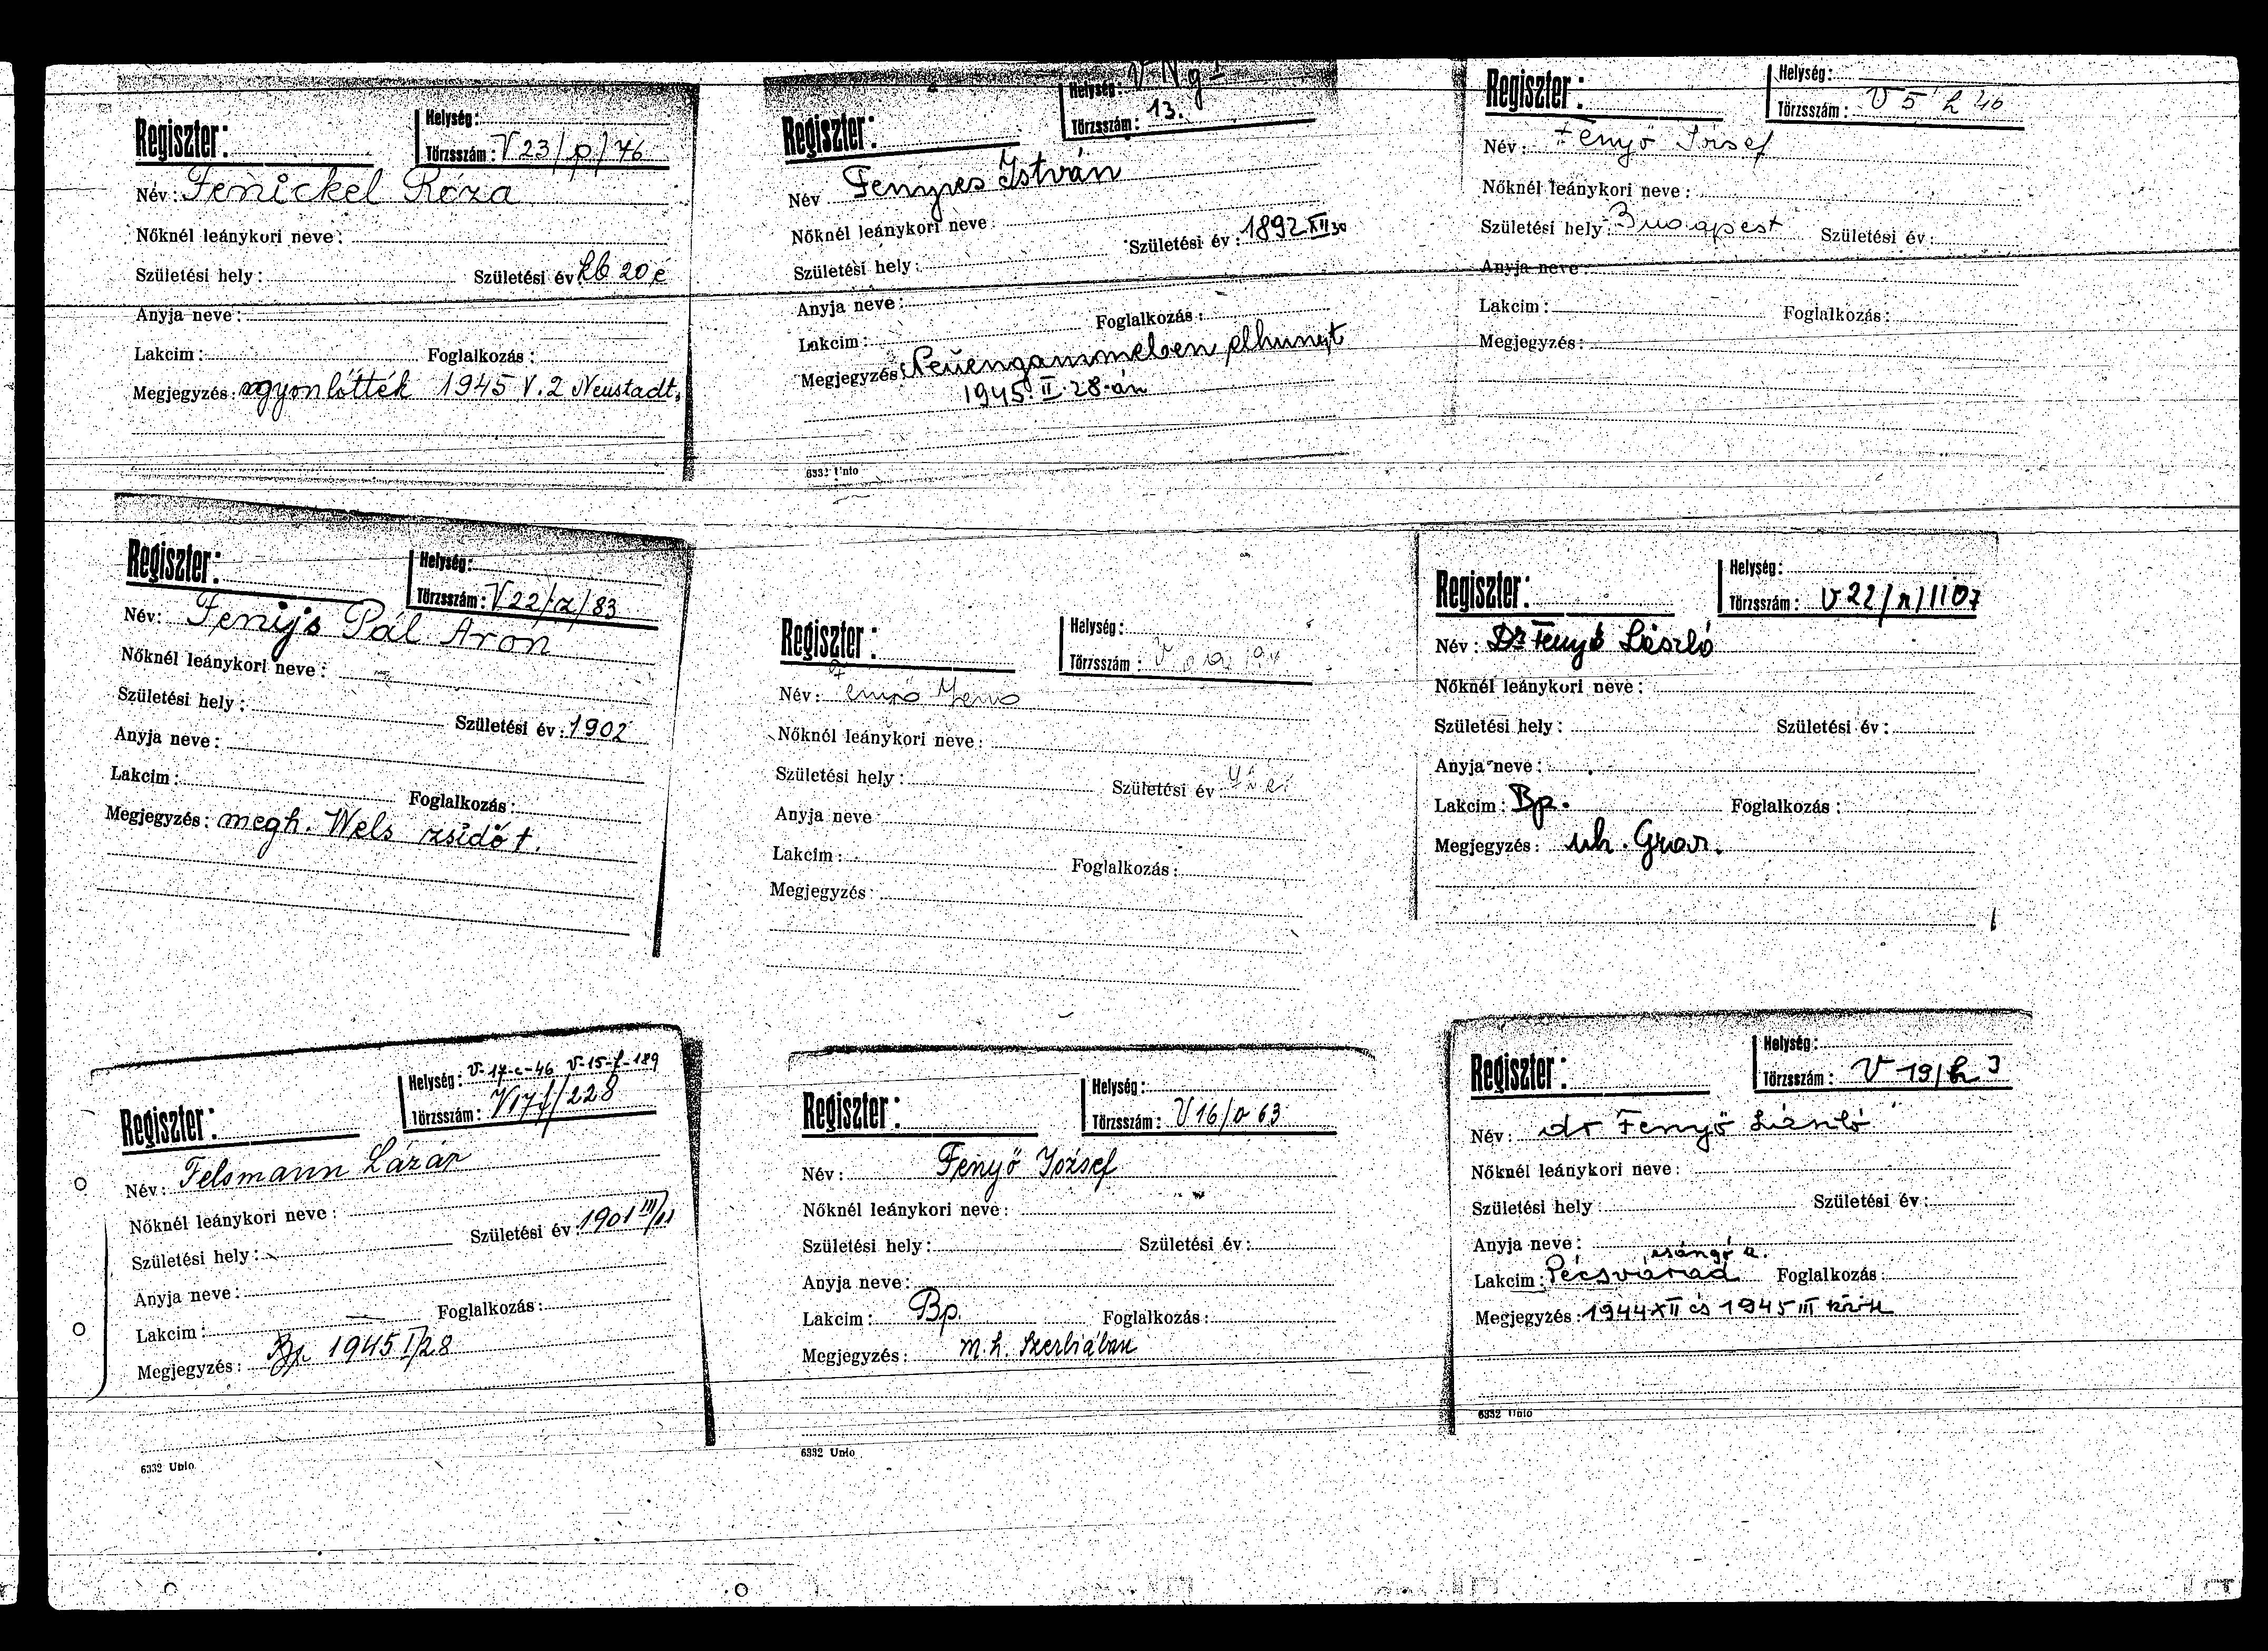 Regiszter:
Helység:
Törzsszám: V 23/p/76
Név: Fenickel Róza
Nőknél leánykori neve:
Születési hely: Születési év: kb 20 é
Anyja neve:
Lakcim: Foglalkozás:
Megjegyzés: agyonlőtték 1945 V. 2 Neustadt.
Regiszter:
Helység:
Törzsszám: 13.
Név Fenyves István
Nőknél leánykori neve:
Születési hely: Születési év: 1892 XII 30
Anyja neve:
Lakcim: Foglalkozás:
Megjegyzés: Neuengammeben elhunyt
1945. II. 28-án
6332 Unio
Regiszter:
Helység:
Törzsszám: V 5 h 40
Név: Fenyő József
Nőknél leánykori neve:
Születési hely: Budapest Születési év:
Anyja neve:
Lakcim: Foglalkozás:
Megjegyzés:
Regiszter:
Helység:
Törzsszám: V 22/z/83
Név: Fenijs Pál Aron
Nőknél leánykori neve:
Születési hely: Születési év: 1902
Anyja neve:
Lakcim: Foglalkozás:
Megjegyzés: megh. Wels zsidó t.
Regiszter:
Helység:
Törzsszám: V
Név: Jenő
Nőknél leánykori neve:
Születési hely: Születési év:
Anyja neve:
Lakcim: Foglalkozás:
Megjegyzés:
Regiszter:
Helység:
Törzsszám: V 22/n/1107
Név: Dr Fenyő László
Nőknél leánykori neve:
Születési hely: Születési év:
Anyja neve:
Lakcim: Bp. Foglalkozás:
Megjegyzés:
Regiszter:
Helység: V-17-c-46 V-15-f-189
Törzsszám: V17f/228
Név: Felsmann Lázár
Nőknél leánykori neve:
Születési hely: Születési év: 1901 III/11
Anyja neve:
Lakcim: Foglalkozás:
Megjegyzés: Bp 1945 I/28
6332 Unio
Regiszter:
Helység:
Törzsszám: V 16/o 63
Név: Fenyő József
Nőknél leánykori neve:
Születési hely: Születési év:
Anyja neve:
Lakcim: Bp. Foglalkozás:
Megjegyzés: m.h. Szerbiában
6332 Unio
Regiszter:
Helység:
Törzsszám: V 19/h 3
Név: dr Fenyő László
Nőknél leánykori neve:
Születési hely: Születési év:
Anyja neve:
csángó u.
Lakcim: Pécsvárad Foglalkozás:
Megjegyzés: 1944 XII és 1945 III közt
6332 Unio